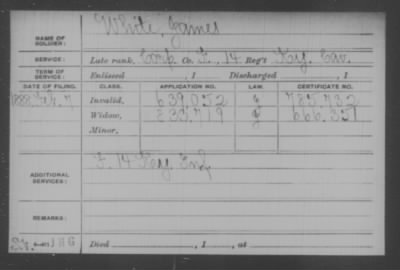 White, James
NAME OF SOLDIER:
SERVICE: Late rank, Corp Co. F., 14 Reg't Ky. Cav.
TERM OF SERVICE: Enlisted , 1 Discharged , 1
DATE OF FILING. CLASS. APPLICATION NO. LAW. CERTIFICATE NO.
1888 Feb. 7 Invalid, 639,052 g 785,732
Widow, 835,719 g 666,351
Minor,
ADDITIONAL SERVICES: F. 14 Ky. Inf
REMARKS:
Died , 1 , at